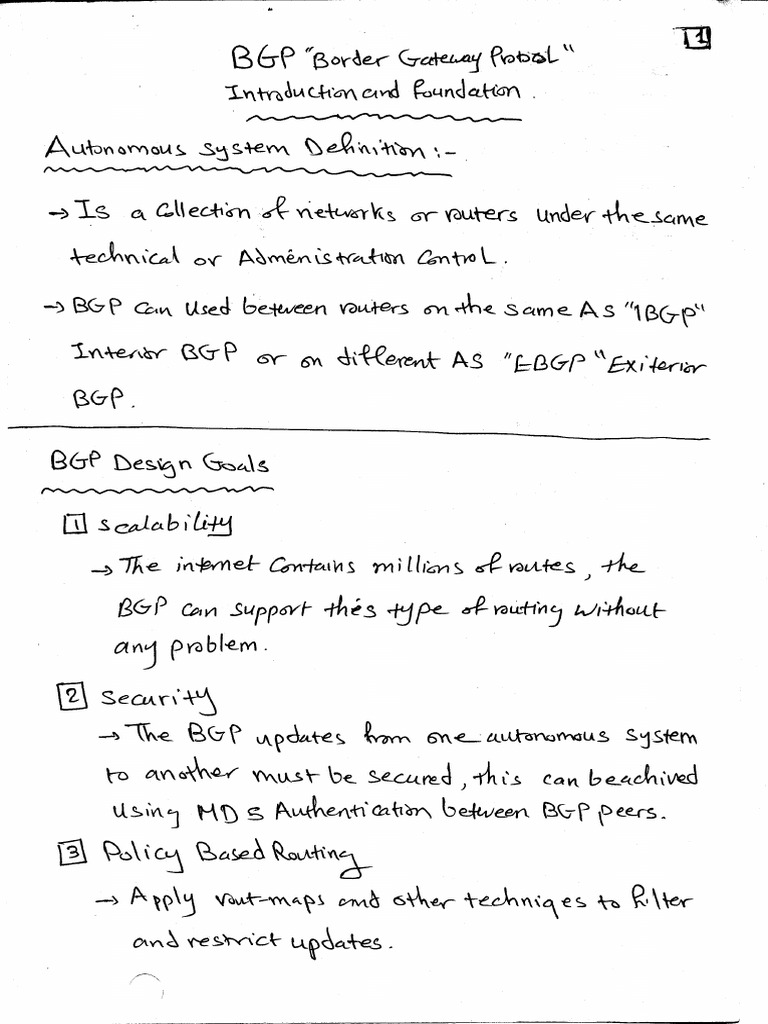 1
BGP "Border Gateway Protocol"
Introduction and foundation.
Autonomous system Definition :-
→ Is a Collection of networks or routers under the same
technical or Administration Control.
→ BGP can used between routers on the same As "IBGP"
Interior BGP or on different AS "EBGP" Exiterior
BGP.
BGP Design Goals
1 scalability
→ The internet Contains millions of routes, the
BGP can support this type of routing without
any problem.
2 security
→ The BGP updates from one autonomous system
to another must be secured, this can be achived
using MD5 Authentication between BGP peers.
3 Policy Based Routing
→ Apply rout-maps and other techniqes to filter
and restrict updates.